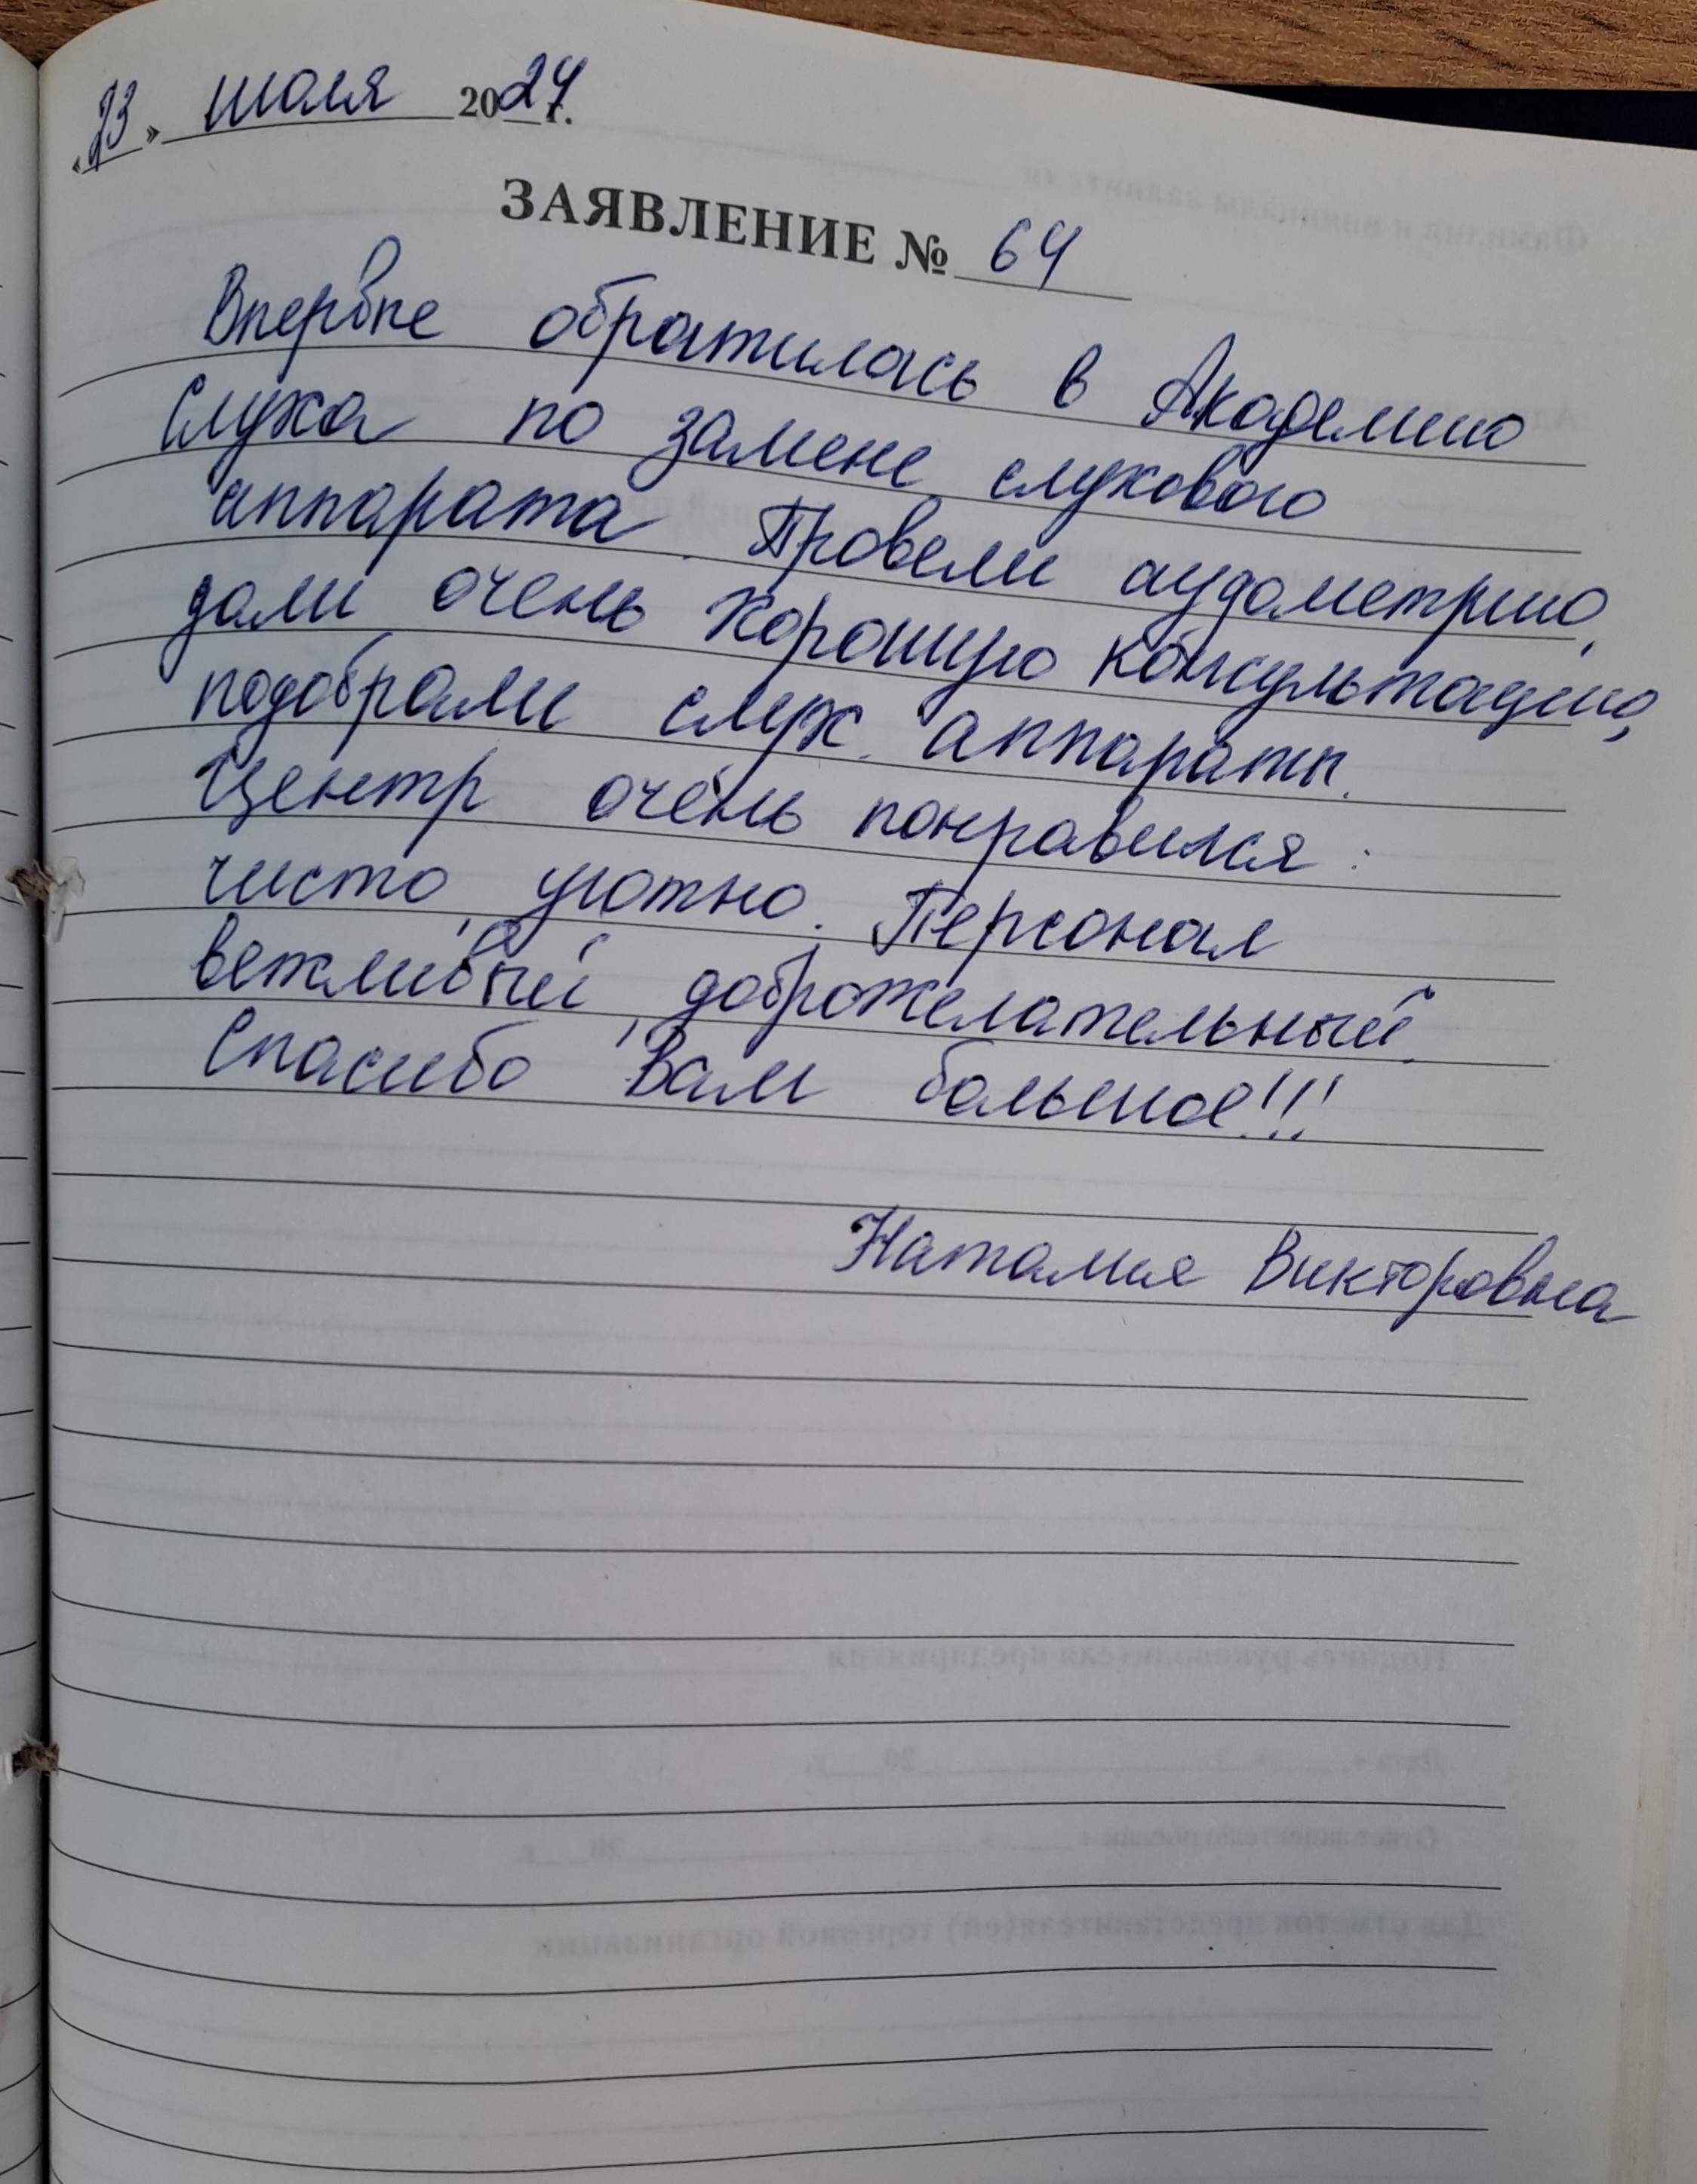 «23» июля 2024 г.
ЗАЯВЛЕНИЕ № 64
Впервые обратилась в Академию
Слуха по замене слухового
аппарата. Провели аудометрию,
дали очень хорошую консультацию,
подобрали слух. аппараты.
Центр очень понравился:
чисто, уютно. Персонал
вежливый, доброжелательный.
Спасибо Вам большое!!!
Наталия Викторовна